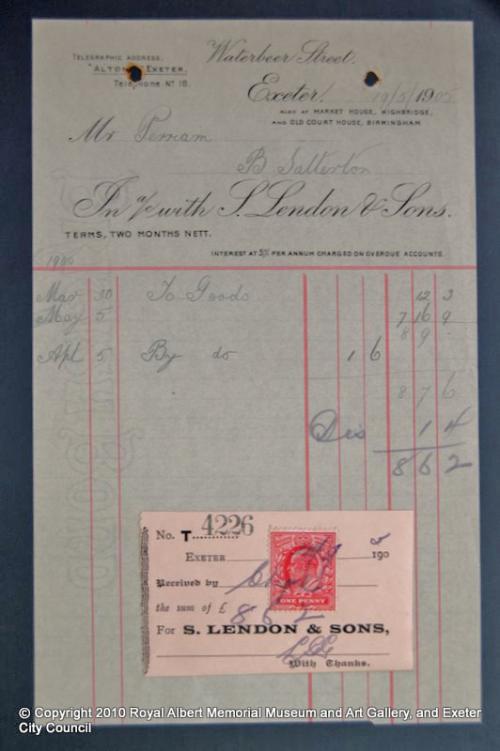 TELEGRAPHIC ADDRESS,
"ALTON" EXETER.
Telephone No 18.
Waterbeer Street.
Exeter, 19/5/1905
ALSO AT MARKET HOUSE, HIGHBRIDGE,
AND OLD COURT HOUSE, BIRMINGHAM
Mr Perriam
B. Salterton
In a/c with S. Lendon & Sons.
TERMS, TWO MONTHS NETT.
INTEREST AT 5% PER ANNUM CHARGED ON OVERDUE ACCOUNTS.
1905
Mar 30 To Goods 12 3
May 5 7 16 9
8 9 -
Apl 5 By do 1 6
8 7 6
Dis 1 4
8 6 2
No. T 4226
EXETER 190 5
Received by
the sum of £ 8 6 2
For S. LENDON & SONS,
With Thanks.
ONE PENNY
© Copyright 2010 Royal Albert Memorial Museum and Art Gallery, and Exeter
City Council